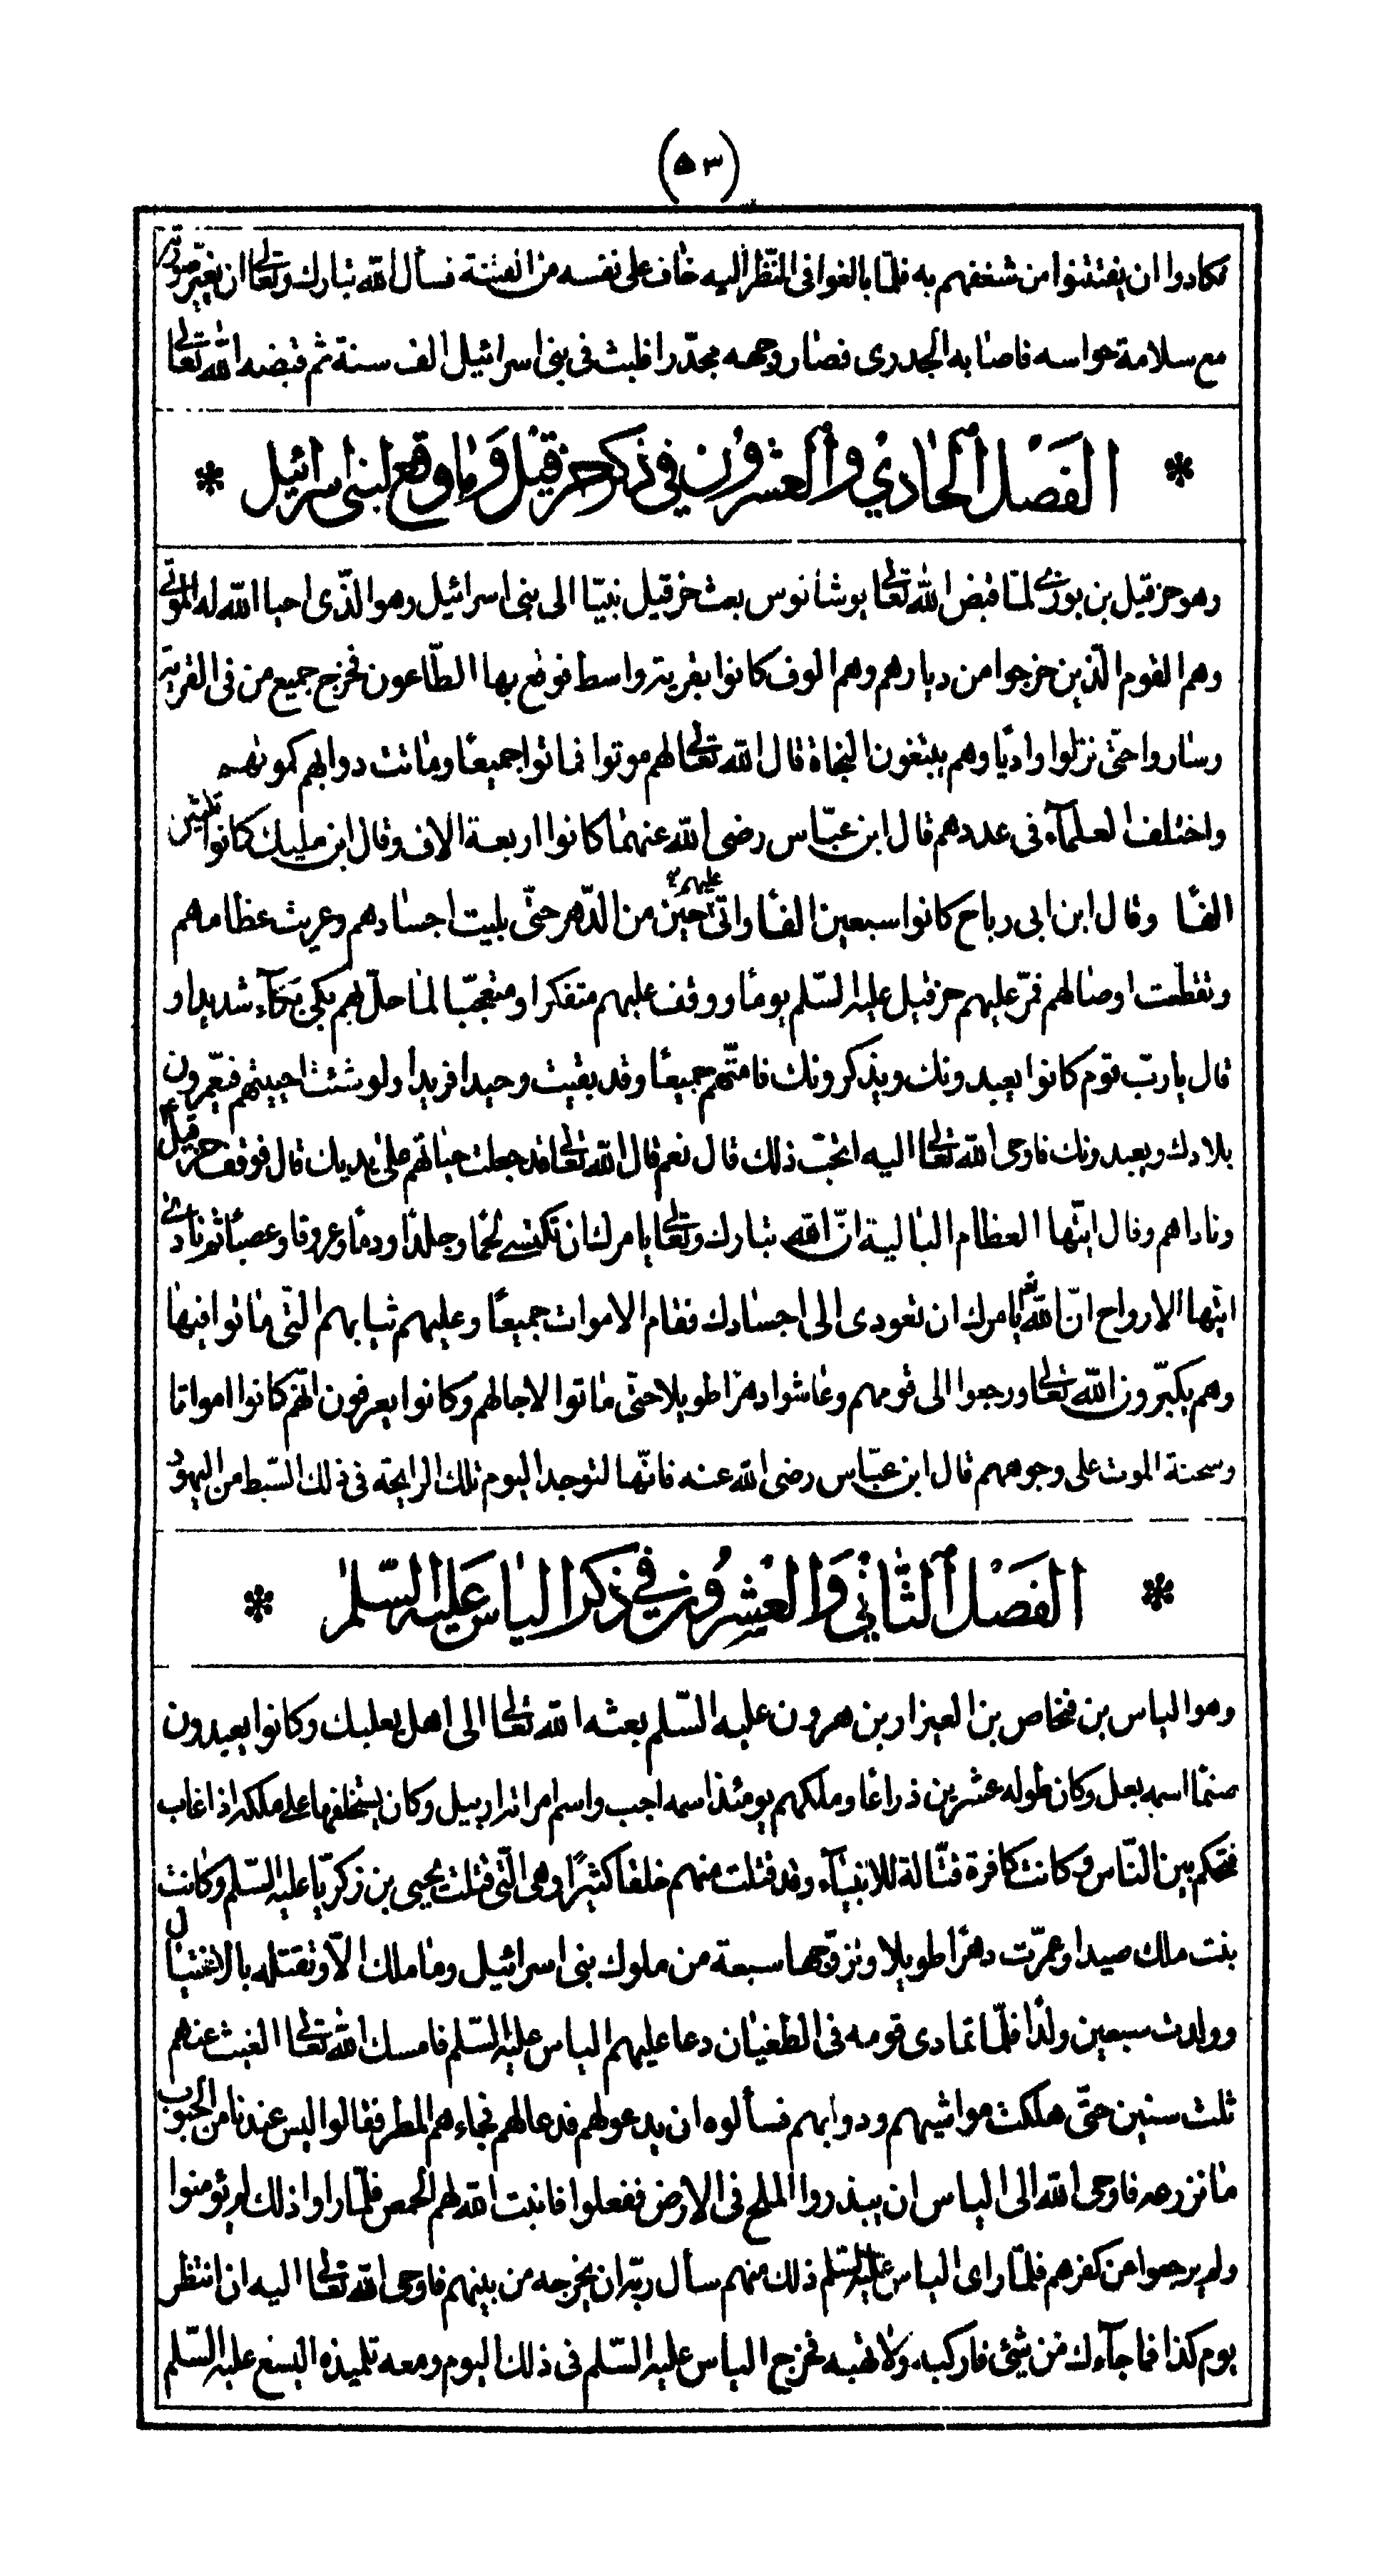 (٥٣)
تكادوا ان يفتتنوا من شغفهم به فلمّا بالغوا فى النّظر اليه خاف على نفسه من الفتنة فسأل اللّه تبارك وتعالى ان يغيّر صورته
مع سلامة حواسه فاصابه الجدرى فصار وجهه مجدّرا فلبث فى بنى اسرائيل الف سنة ثم قبضه اللّه تعالى
* الفَصْل الحَادي والعشرُون في ذكر حزقيل وَما وقع لبنى اسرائيل *
وهو حزقيل بن بوزى لمّا قبض اللّه تعالى يوشانوس بعث حزقيل نبيّا الى بنى اسرائيل وهو الذّى احيا اللّه له الموتى
وهم القوم الّذين خرجوا من ديارهم وهم الوف كانوا بقرية واسط فوقع بها الطّاعون فخرج جميع من فى القرية
وساروا حتّى نزلوا واديًا وهم يبتغون النجاة قال اللّه تعالى لهم موتوا فماتوا جميعًا وماتت دوابهم كموتهم
واختلف العلمآء فى عددهم قال ابن عبّاس رضى اللّه عنهما كانوا اربعة الاف وقال ابن مليك كانوا ثلثين
الفًا وقال ابن ابى رباح كانوا سبعين الفًا واتى عليهم حين من الدّهر حتّى بليت اجسادهم وعريت عظامهم
وتقطّعت اوصالهم فمرّ عليهم حزقيل عليه السّلم يومًا ووقف عليهم متفكرا ومتعجّبا لما حلّ بهم بكى بَكآء شديدا و
قال يا ربّ قوم كانوا يعبدونك ويذكرونك فامتّهم جميعًا وقد بقيت وحيدا فريدًا ولو شئت احييتهم فيعمّرون
بلادك ويعبدونك فاوحى اللّه تعالى اليه اتحبّ ذلك قال نعم قال اللّه تعالى قد جعلت حياتهم على يديك قال فوقف حزقيل ع
وناداهم وقال ايّتها العظام البالية انّ اللّه تبارك وتعالى يامرك ان تكتسى لحمًا وجلدًا ودمًا وعروقا وعصبًا ثم نادى
ايّتها الارواح انّ اللّه تع يامرك ان تعودى الى اجسادك فقام الاموات جميعًا وعليهم ثيابهم التّى ماتوا فيها
وهم يكبّرون اللّه تعالى ورجعوا الى قومهم وعاشوا دهرًا طويلا حتّى ماتوا لاجالهم وكانوا يعرفون انّهم كانوا امواتا
وسحنة الموت على وجوههم قال ابن عبّاس رضى اللّه عنه فانّها لتوجد اليوم تلك الرايحة فى ذلك السّبط من اليهود
* الفَصْل الثّاني وَالعشرُون في ذكر الياس عَليه السّلم *
وهو الياس بن فنحاص بن العيزار بن هرون عليه السّلم بعثه اللّه تعالى الى اهل بعلبك وكانوا يعبدون
صنمًا اسمه بعل وكان طوله عشرين ذراعًا وملكهم يومئذ اسمه اجب واسم امراته اربيل وكان يستخلفها على ملكه اذا غاب
فتحكم بين النّاس وكانت كافرة قتّالة للانبيآء وقد قتلت منهم خلقا كثيرًا وهى الّتى قتلت يحيى بن زكريّا عليه السّلم وكانت
بنت ملك صيدا وعمّرت دهرًا طويلا وتزوّجها سبعة من ملوك بنى اسرائيل وما ملك الّا وتقتله بالاغتيال
وولدت سبعين ولدًا فلمّا تمادى قومه فى الطغيان دعا عليهم الياس عليه السّلم فامسك اللّه تعالى الغيث عنهم
ثلث سنين حتّى هلكت مواشيهم ودوابهم فسألوه ان يدعو لهم فدعا لهم فجاءهم المطر فقالوا ليس عندنا من الحبوب
ما نزرعه فاوحى اللّه الى الياس ان يبذروا الملح فى الارض ففعلوا فانبت اللّه لهم الحمص فلمّا راوا ذلك لم يؤمنوا
ولم يرجعوا عن كفرهم فلمّا راى الياس عليه السّلم ذلك منهم سأل ربّه ان يخرجه من بينهم فاوحى اللّه تعالى اليه ان انتظر
يوم كذا فما جآءك من شيئى فاركبه ولا تهبه فخرج الياس عليه السّلم فى ذلك اليوم ومعه تلميذه اليسع عليه السّلم